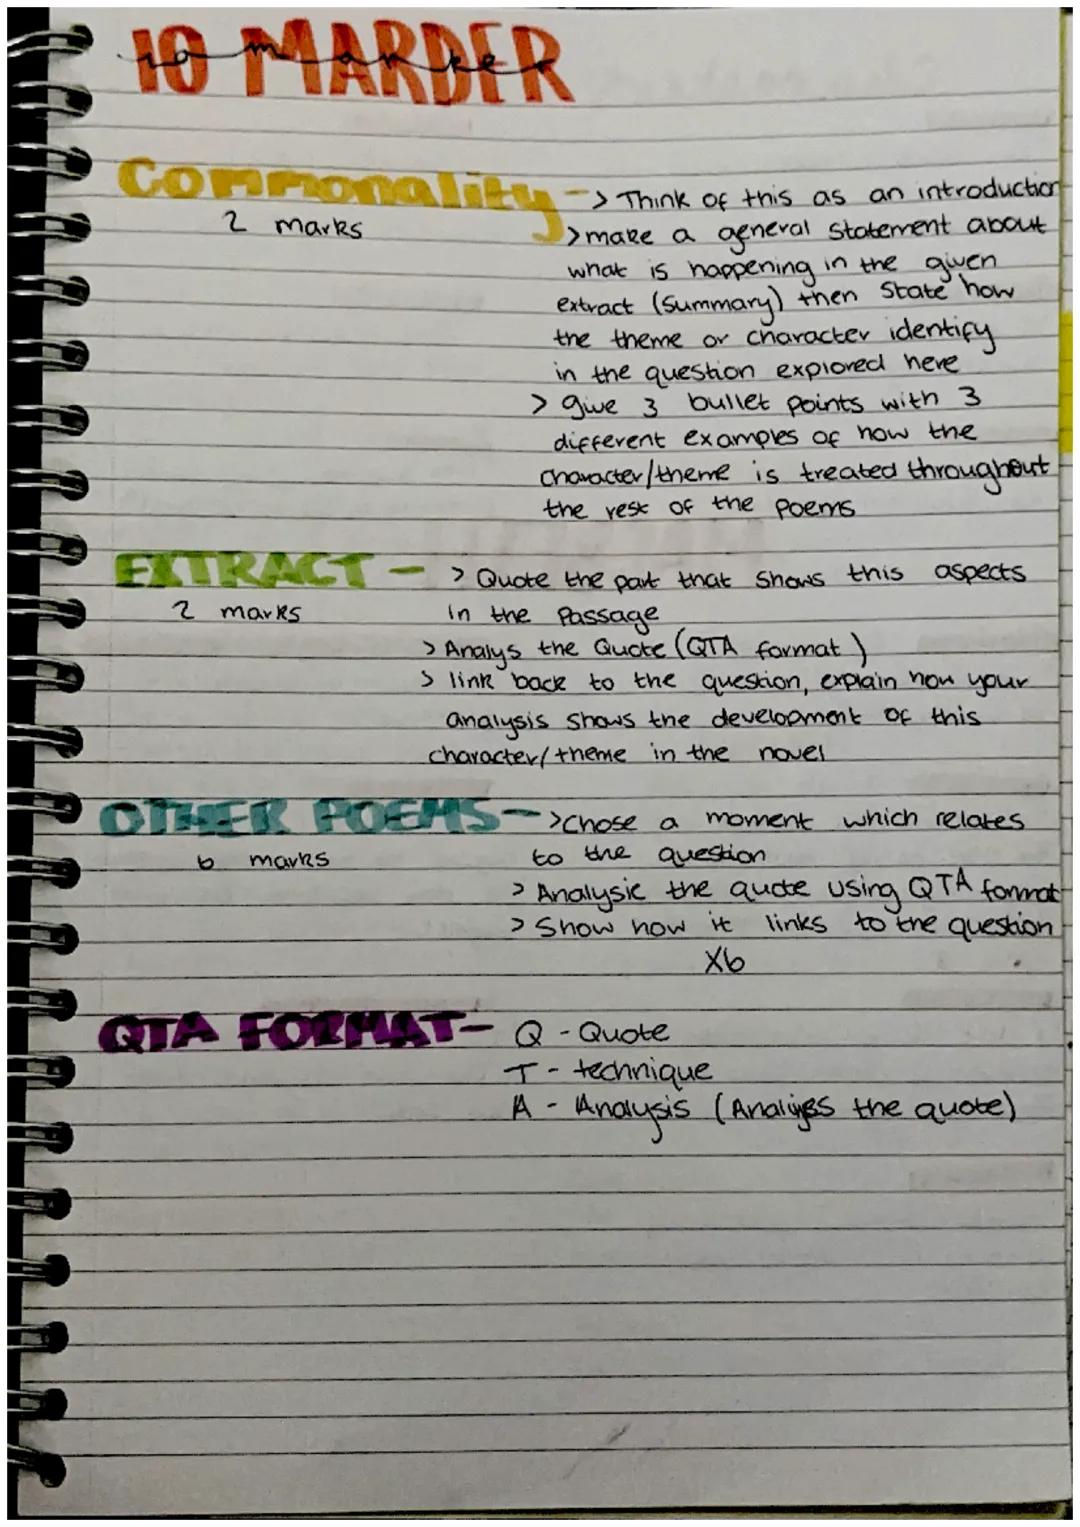 10 MARDER
10 marker
Commonality -> Think of this as an introduction
2 marks
> make a general statement about
what is happening in the given
extract (summary) then state how
the theme or character identify
in the question explored here
> give 3 bullet points with 3
different examples of how the
character/theme is treated throughout
the rest of the poems
EXTRACT - > Quote the part that shows this aspects
2 marks
in the passage
> Analys the Quote (QTA format)
> link back to the question, explain how your
analysis shows the development of this
character/theme in the novel
OTHER POEMS - > chose a moment which relates
6 marks
to the question
> Analysie the quote using QTA format
> Show how it links to the question
x6
QTA FORMAT - Q - Quote
T - technique
A - Analysis ( the quote)